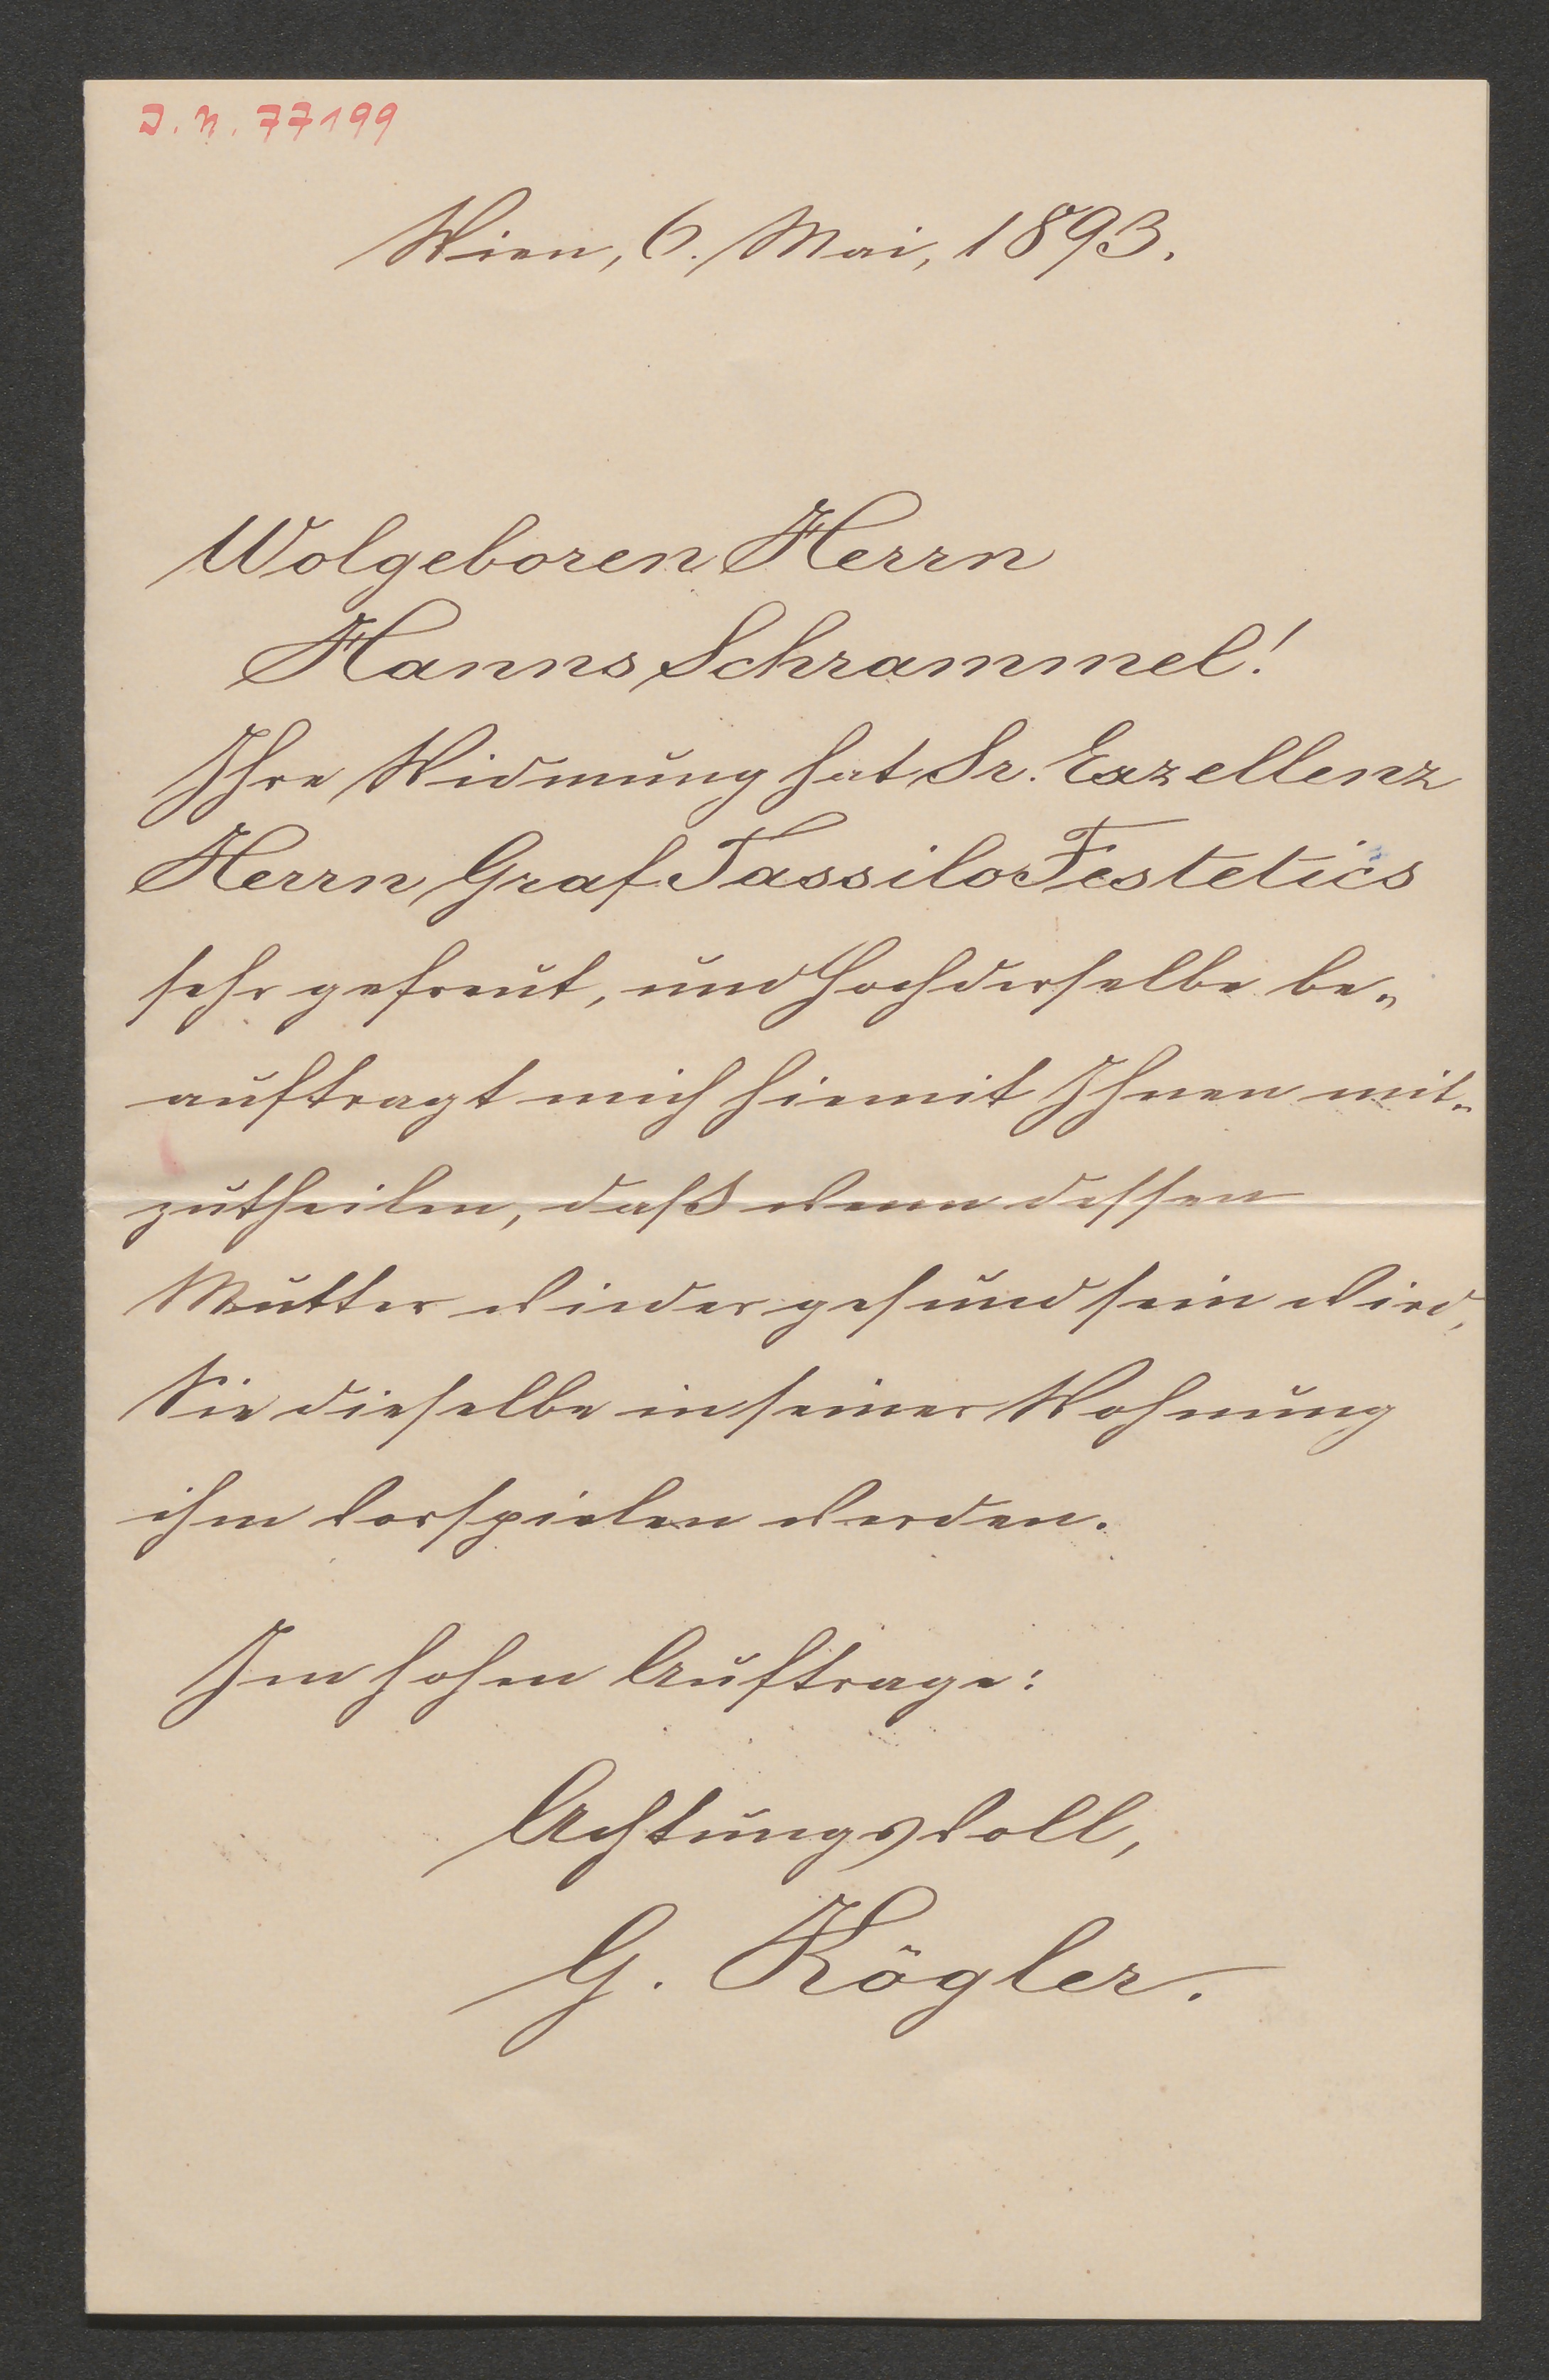 I. N. 77199
Wien, 6. Mai, 1893.
Wolgeboren Herrn
Hanns Schrammel!
Ihre Widmung hat Sr. Exzellenz
Herrn Graf Tassilo Festetics
sehr gefreut, und Hochderselbe be„
auftragt mich hiemit Ihnen mit„
zutheilen, daß wenn dessen
Mutter wieder gesund sein wird,
Sie dieselbe in seiner Wohnung
ihm vorspielen werden.
Im hohen Auftrage:
Achtungsvoll,
G. Kögler.